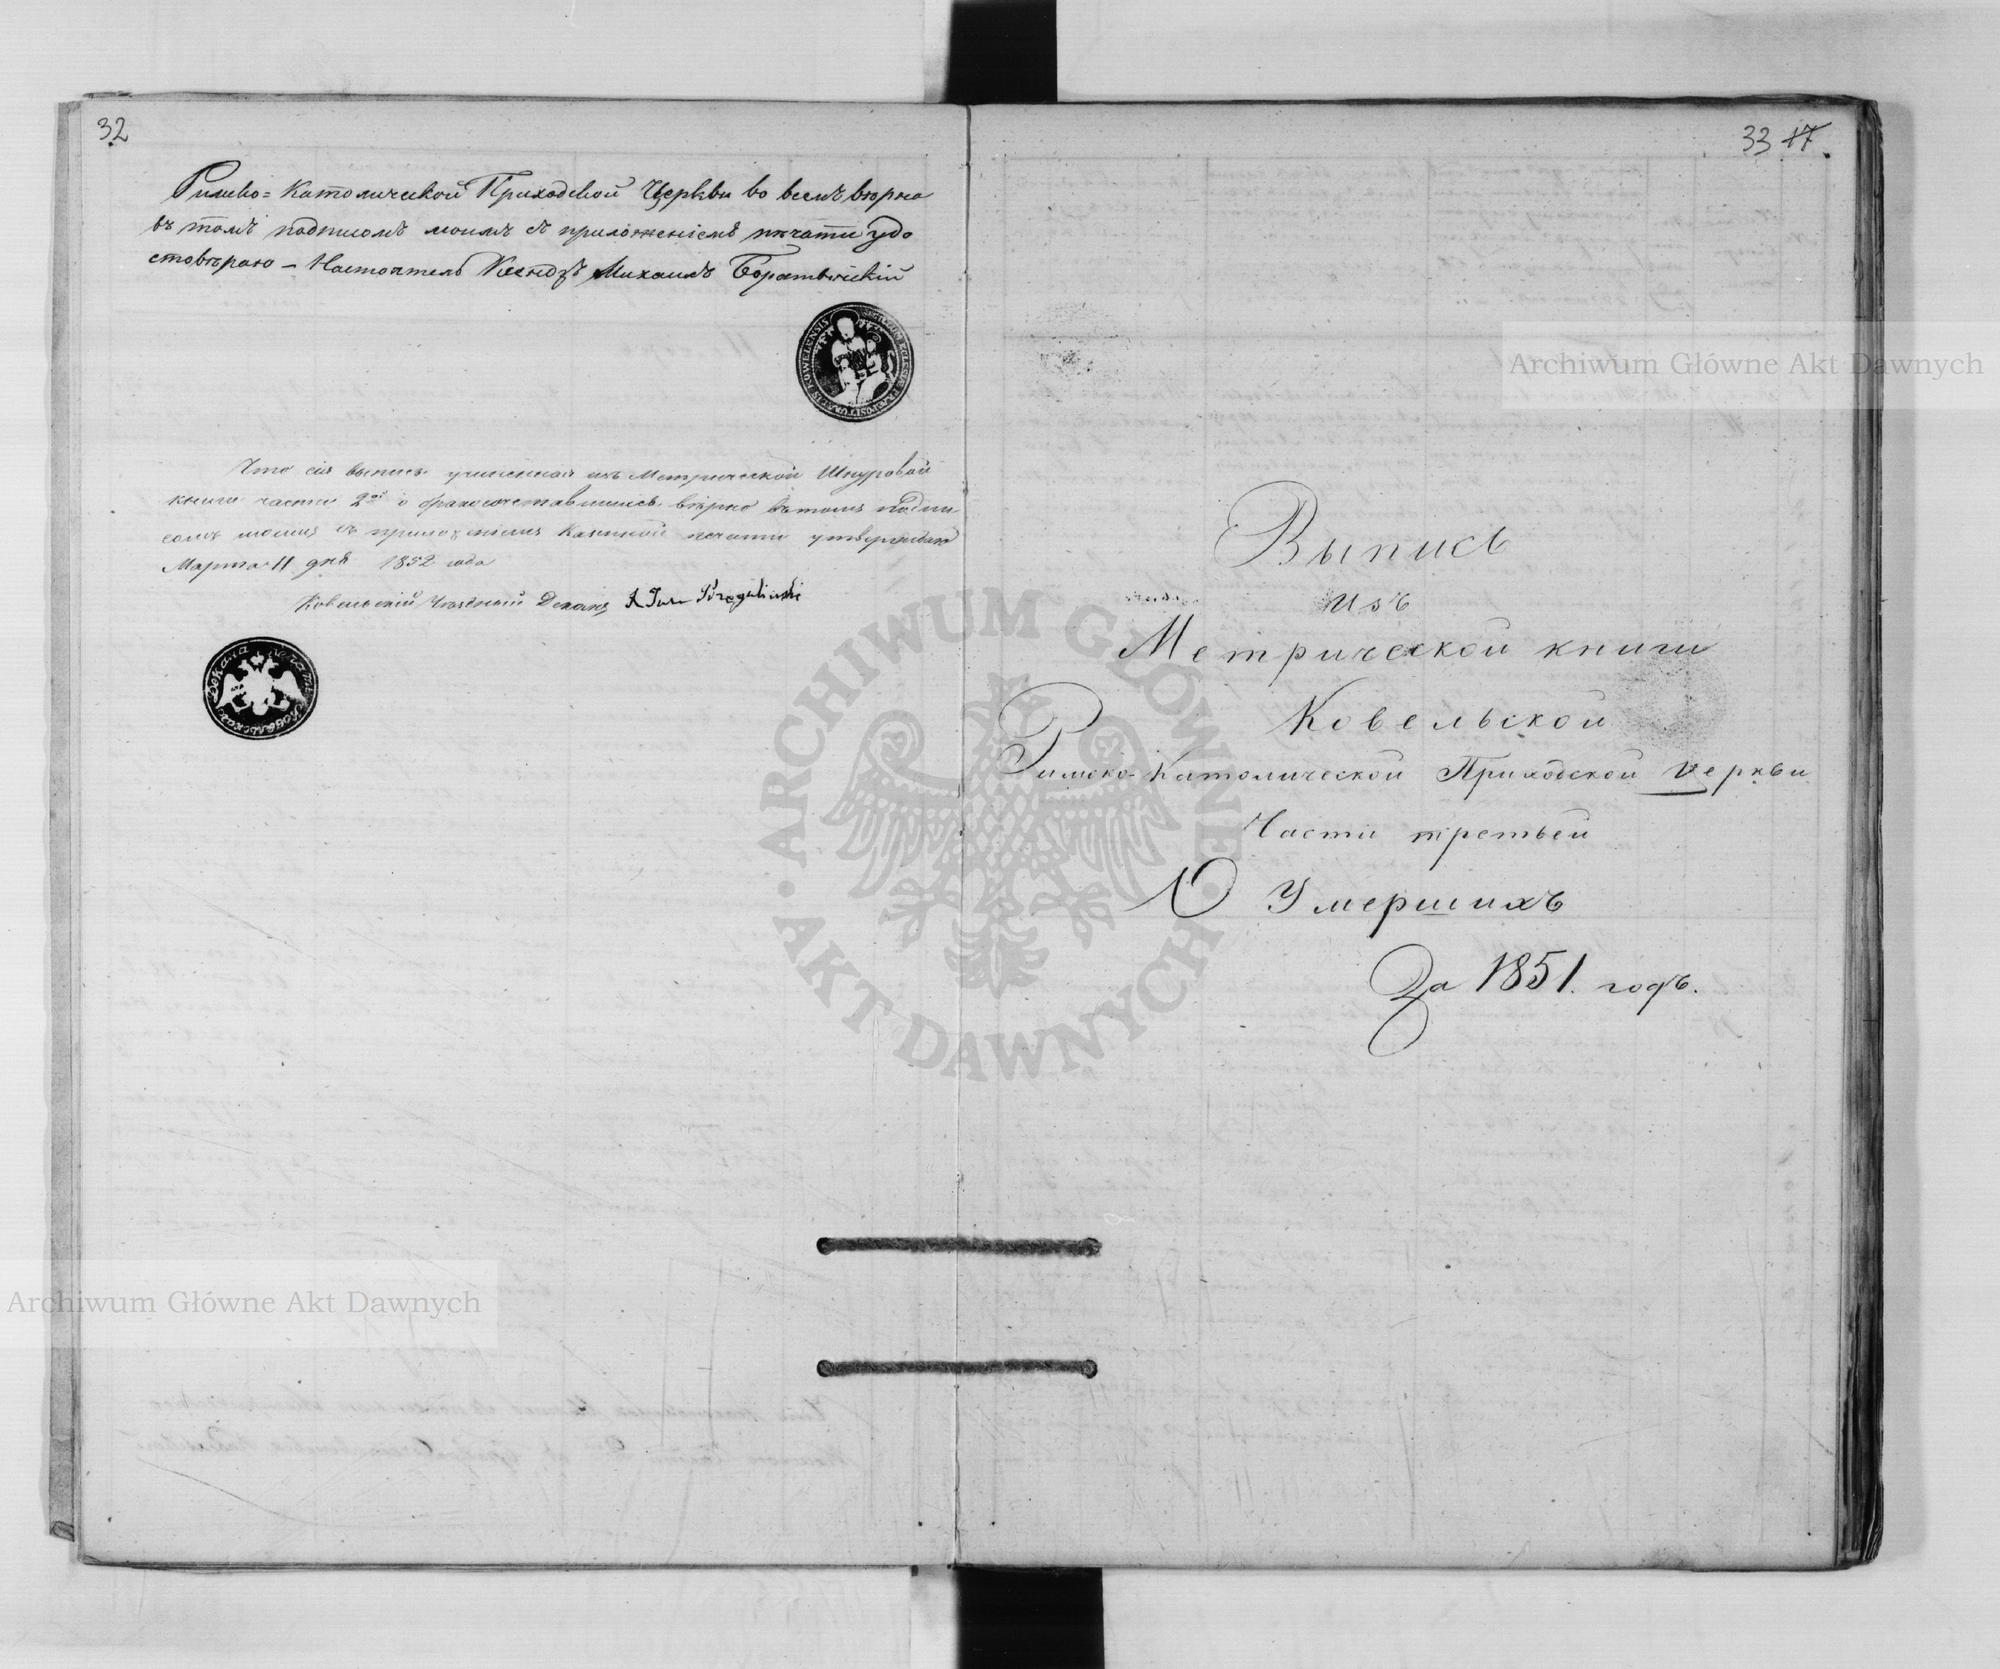 32
Римско-Католической Приходской Церкви во всемъ вѣрно
въ томъ подписомъ моимъ съ приложеніемъ печати удо
стовѣраю – Настоятель Ксендзъ Михаилъ
SIGILLUM ECLESIÆ PRÆPOSITURALIS KOWELENSIS
Что сія выпись учиненная изъ Метрической Шнуровой
книги части 2ой о бракосочетавшихся вѣрно въ томъ подпи
сомъ моимъ съ приложеніемъ Казенной печати утверждаю
Марта 11 дня 1852 года
Ковельскій Уѣздный Деканъ
Печать Ковельскаго Декана
33 17
Выпись
изъ
Метрической книги
Ковельской
Римско-Католической Приходской Церкви
Части третьей
О Умершихъ
За 1851. годъ.
Archiwum Główne Akt Dawnych
ARCHIWUM GŁÓWNE AKT DAWNYCH
Archiwum Główne Akt Dawnych